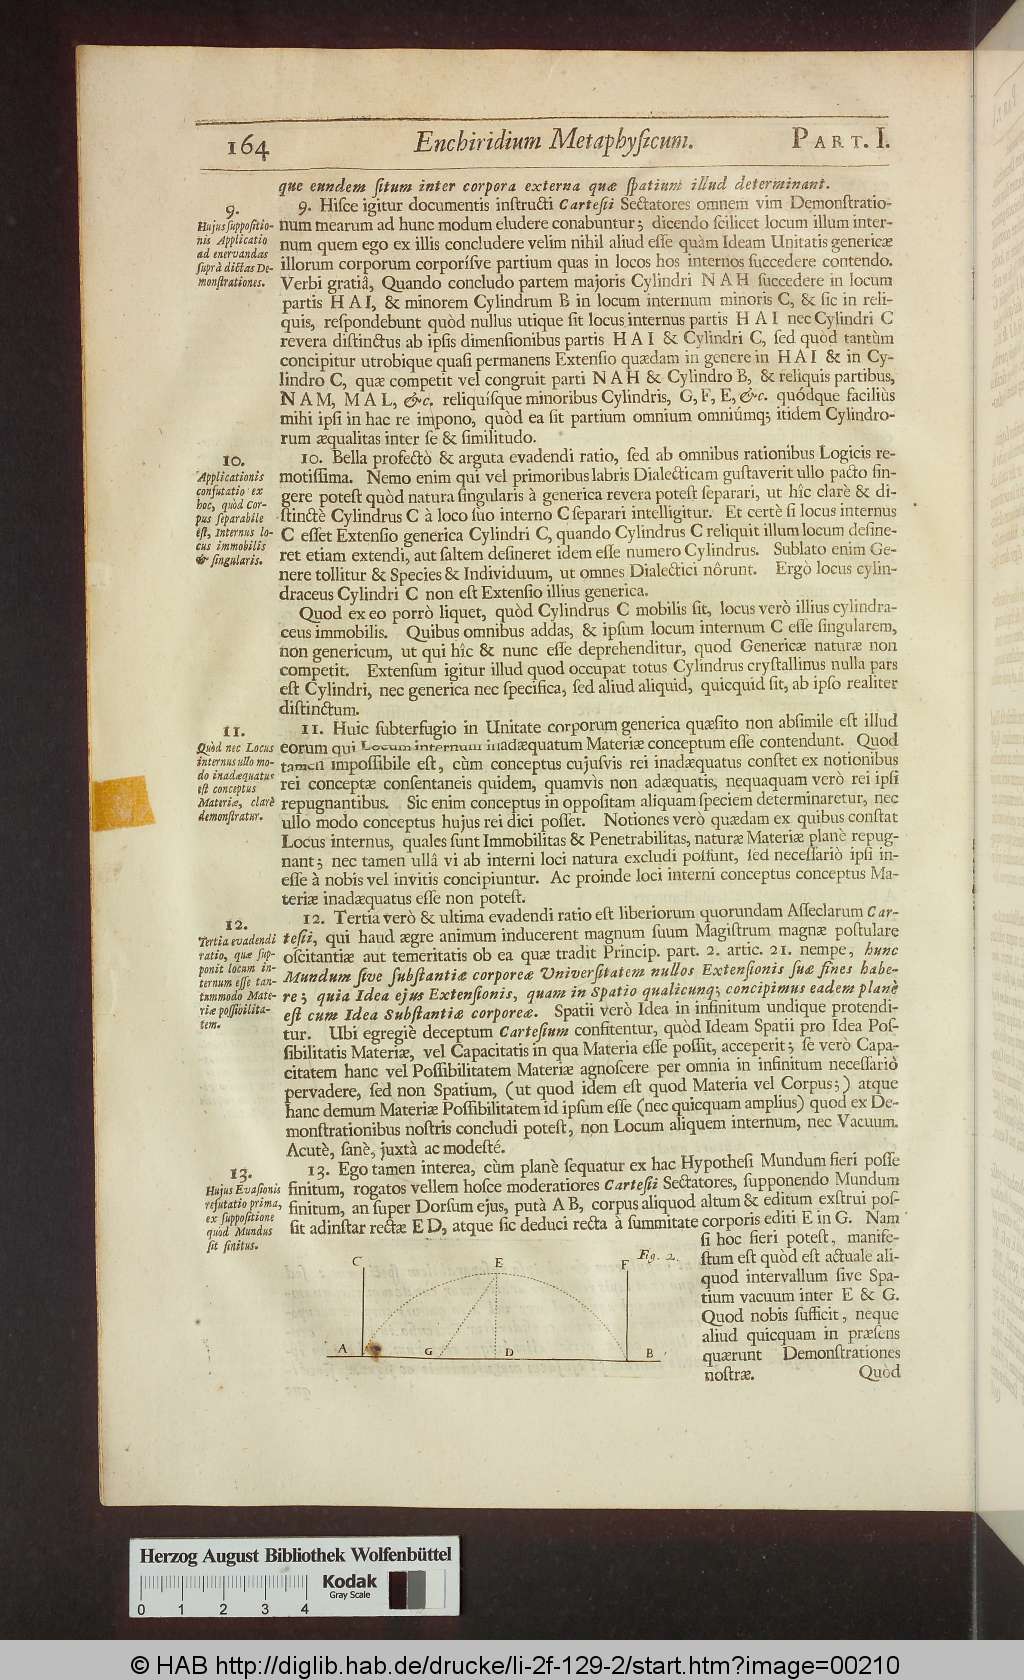 164 Enchiridium Metaphyſicum. PART. I.
que eundem ſitum inter corpora externa quæ ſpatium illud determinant.
9.
Hujus ſuppoſitio-
nis Applicatio
ad enervandas
ſuprà dictas De-
monſtrationes.
9. Hiſce igitur documentis inſtructi Carteſii Sectatores omnem vim Demonſtratio-
num mearum ad hunc modum eludere conabuntur; dicendo ſcilicet locum illum inter-
num quem ego ex illis concludere velim nihil aliud eſſe quàm Ideam Unitatis genericæ
illorum corporum corporíſve partium quas in locos hos internos ſuccedere contendo.
Verbi gratiâ, Quando concludo partem majoris Cylindri N A H ſuccedere in locum
partis H A I, & minorem Cylindrum B in locum internum minoris C, & ſic in reli-
quis, reſpondebunt quòd nullus utique ſit locus internus partis H A I nec Cylindri C
revera diſtinctus ab ipſis dimenſionibus partis H A I & Cylindri C, ſed quòd tantùm
concipitur utrobique quaſi permanens Extenſio quædam in genere in H A I & in Cy-
lindro C, quæ competit vel congruit parti N A H & Cylindro B, & reliquis partibus,
N A M, M A L, &c. reliquíſque minoribus Cylindris, G, F, E, &c. quódque faciliùs
mihi ipſi in hac re impono, quòd ea ſit partium omnium omniúmq; itidem Cylindro-
rum æqualitas inter ſe & ſimilitudo.
10.
Applicationis
confutatio ex
hoc, quòd Cor-
pus ſeparabile
eſt, Internus lo-
cus immobilis
& ſingularis.
10. Bella profectò & arguta evadendi ratio, ſed ab omnibus rationibus Logicis re-
motiſſima. Nemo enim qui vel primoribus labris Dialecticam guſtaverit ullo pacto fin-
gere poteſt quòd natura ſingularis à generica revera poteſt ſeparari, ut hîc clarè & di-
ſtinctè Cylindrus C à loco ſuo interno C ſeparari intelligitur. Et certè ſi locus internus
C eſſet Extenſio generica Cylindri C, quando Cylindrus C reliquit illum locum deſine-
ret etiam extendi, aut ſaltem deſineret idem eſſe numero Cylindrus. Sublato enim Ge-
nere tollitur & Species & Individuum, ut omnes Dialectici nôrunt. Ergò locus cylin-
draceus Cylindri C non eſt Extenſio illius generica.
Quod ex eo porrò liquet, quòd Cylindrus C mobilis ſit, locus verò illius cylindra-
ceus immobilis. Quibus omnibus addas, & ipſum locum internum C eſſe ſingularem,
non genericum, ut qui hîc & nunc eſſe deprehenditur, quod Genericæ naturæ non
competit. Extenſum igitur illud quod occupat totus Cylindrus cryſtallinus nulla pars
eſt Cylindri, nec generica nec ſpecifica, ſed aliud aliquid, quicquid ſit, ab ipſo realiter
diſtinctum.
11.
Quòd nec Locus
internus ullo mo-
do inadæquatus
eſt conceptus
Materiæ, clarè
demonſtratur.
11. Huic ſubterfugio in Unitate corporum generica quæſito non abſimile eſt illud
eorum qui Locum internum inadæquatum Materiæ conceptum eſſe contendunt. Quod
tamen impoſſibile eſt, cùm conceptus cujuſvis rei inadæquatus conſtet ex notionibus
rei conceptæ conſentaneis quidem, quamvìs non adæquatis, nequaquam verò rei ipſi
repugnantibus. Sic enim conceptus in oppoſitam aliquam ſpeciem determinaretur, nec
ullo modo conceptus hujus rei dici poſſet. Notiones verò quædam ex quibus conſtat
Locus internus, quales ſunt Immobilitas & Penetrabilitas, naturæ Materiæ planè repug-
nant; nec tamen ullâ vi ab interni loci natura excludi poſſunt, ſed neceſſariò ipſi in-
eſſe à nobis vel invitis concipiuntur. Ac proinde loci interni conceptus conceptus Ma-
teriæ inadæquatus eſſe non poteſt.
12.
Tertia evadendi
ratio, quæ ſup-
ponit locum in-
ternum eſſe tan-
tummodo Mate-
riæ poſſibilita-
tem.
12. Tertia verò & ultima evadendi ratio eſt liberiorum quorundam Aſſeclarum Car-
teſii, qui haud ægre animum inducerent magnum ſuum Magiſtrum magnæ poſtulare
oſcitantiæ aut temeritatis ob ea quæ tradit Princip. part. 2. artic. 21. nempe, hunc
Mundum ſive ſubſtantiæ corporeæ Univerſitatem nullos Extenſionis ſuæ fines habe-
re; quia Idea ejus Extenſionis, quam in Spatio qualicunq; concipimus eadem planè
eſt cum Idea Subſtantiæ corporeæ. Spatii verò Idea in infinitum undique protendi-
tur. Ubi egregiè deceptum Carteſium confitentur, quòd Ideam Spatii pro Idea Poſ-
ſibilitatis Materiæ, vel Capacitatis in qua Materia eſſe poſſit, acceperit; ſe verò Capa-
citatem hanc vel Poſſibilitatem Materiæ agnoſcere per omnia in infinitum neceſſariò
pervadere, ſed non Spatium, (ut quod idem eſt quod Materia vel Corpus;) atque
hanc demum Materiæ Poſſibilitatem id ipſum eſſe (nec quicquam amplius) quod ex De-
monſtrationibus noſtris concludi poteſt, non Locum aliquem internum, nec Vacuum.
Acutè, ſanè, juxtà ac modeſté.
13.
Hujus Evaſionis
refutatio prima,
ex ſuppoſitione
quòd Mundus
ſit finitus.
13. Ego tamen interea, cùm planè ſequatur ex hac Hypotheſi Mundum fieri poſſe
finitum, rogatos vellem hoſce moderatiores Carteſii Sectatores, ſupponendo Mundum
finitum, an ſuper Dorſum ejus, putà A B, corpus aliquod altum & editum exſtrui poſ-
ſit adinſtar rectæ E D, atque ſic deduci recta à ſummitate corporis editi E in G. Nam
ſi hoc fieri poteſt, manife-
ſtum eſt quòd eſt actuale ali-
quod intervallum ſive Spa-
tium vacuum inter E & G.
Quod nobis ſufficit, neque
aliud quicquam in præſens
quærunt Demonſtrationes
noſtræ. Quòd
C E F Fig. 2.
A G D B
Herzog August Bibliothek Wolfenbüttel
Kodak
Gray Scale
0 1 2 3 4
© HAB http://diglib.hab.de/drucke/li-2f-129-2/start.htm?image=00210